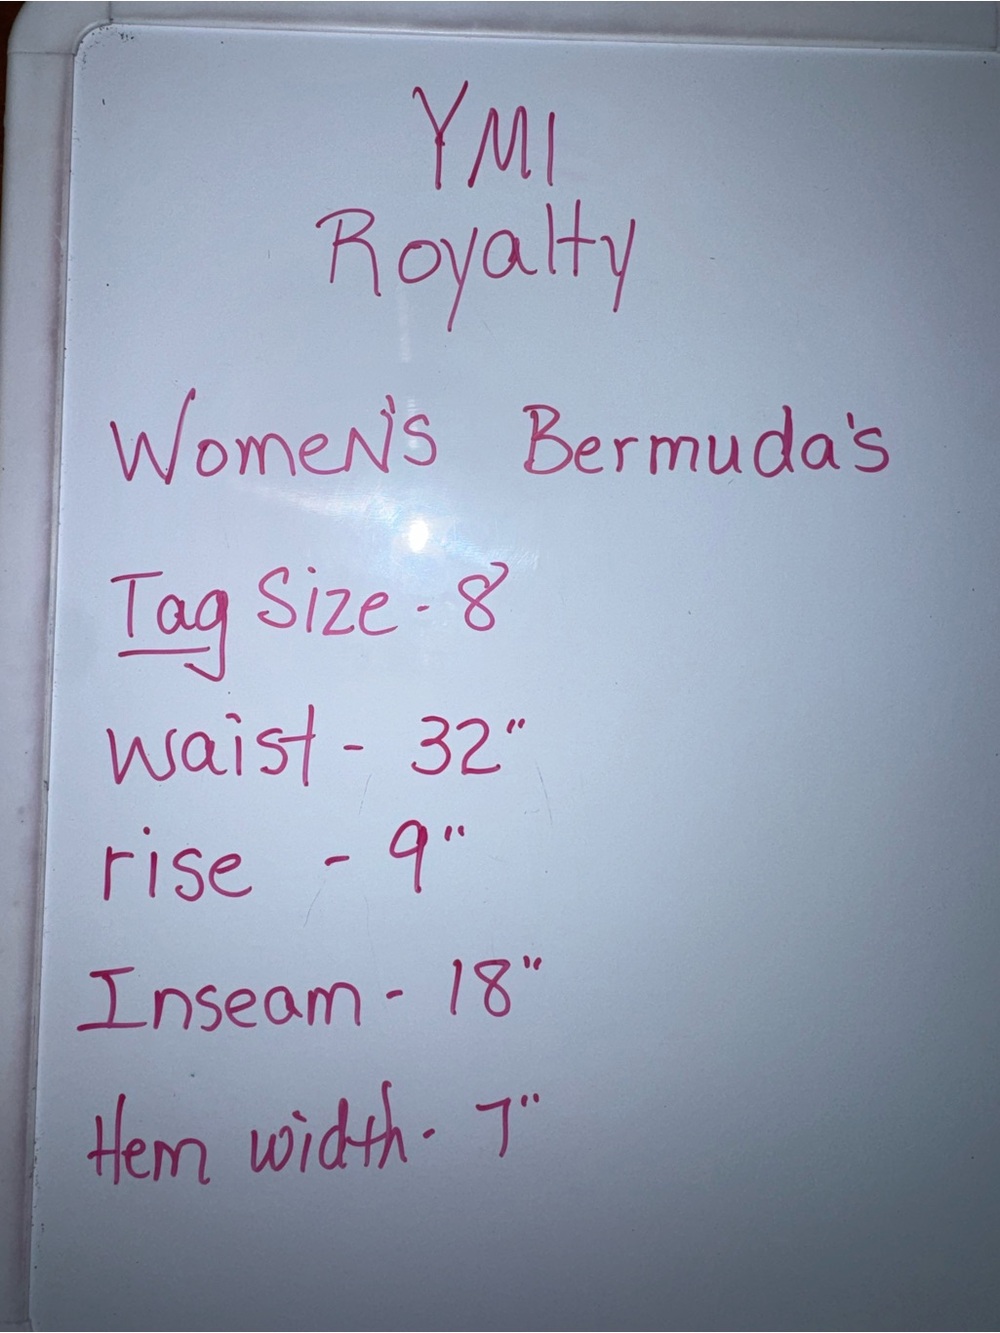 YMI
Royalty
Women's Bermuda's
Tag Size - 8
waist - 32"
rise - 9"
Inseam - 18"
Hem width - 7"